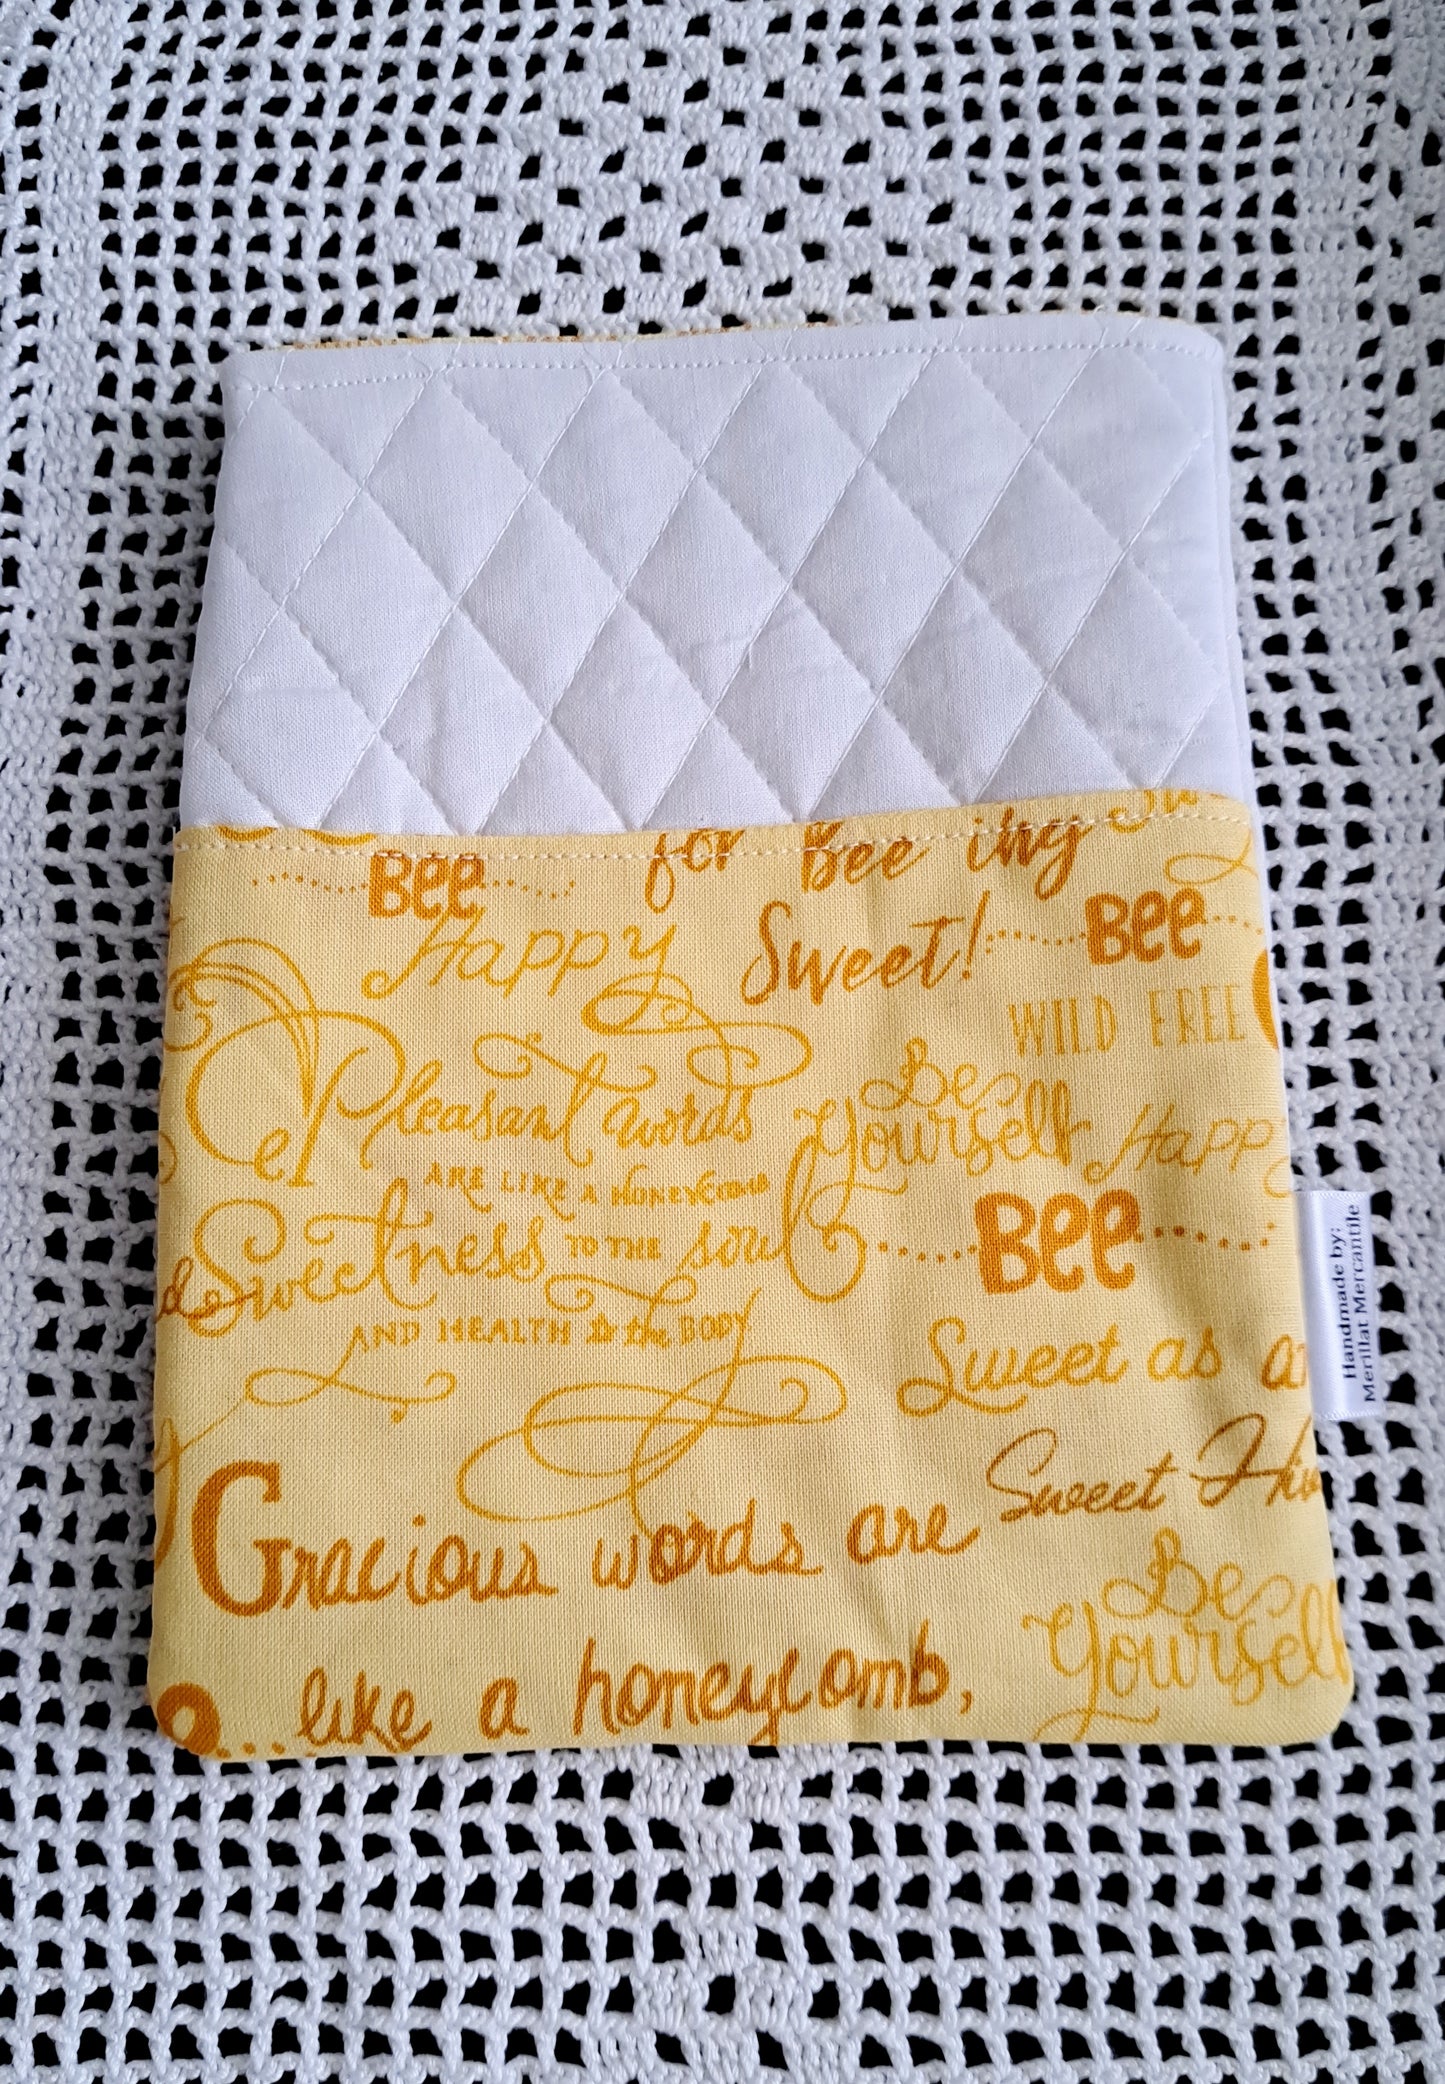 for Bee ing
Bee
Happy
Sweet!
Bee
WILD FREE
Pleasant words
ARE LIKE A HONEYCOMB
Sweetness TO THE soul
AND HEALTH to the BODY
Be
Yourself
Happy
Bee
Handmade by:
Merillat Mercantile
Sweet as
Sweet
Gracious words are
like a honeycomb,
Be
Yourself